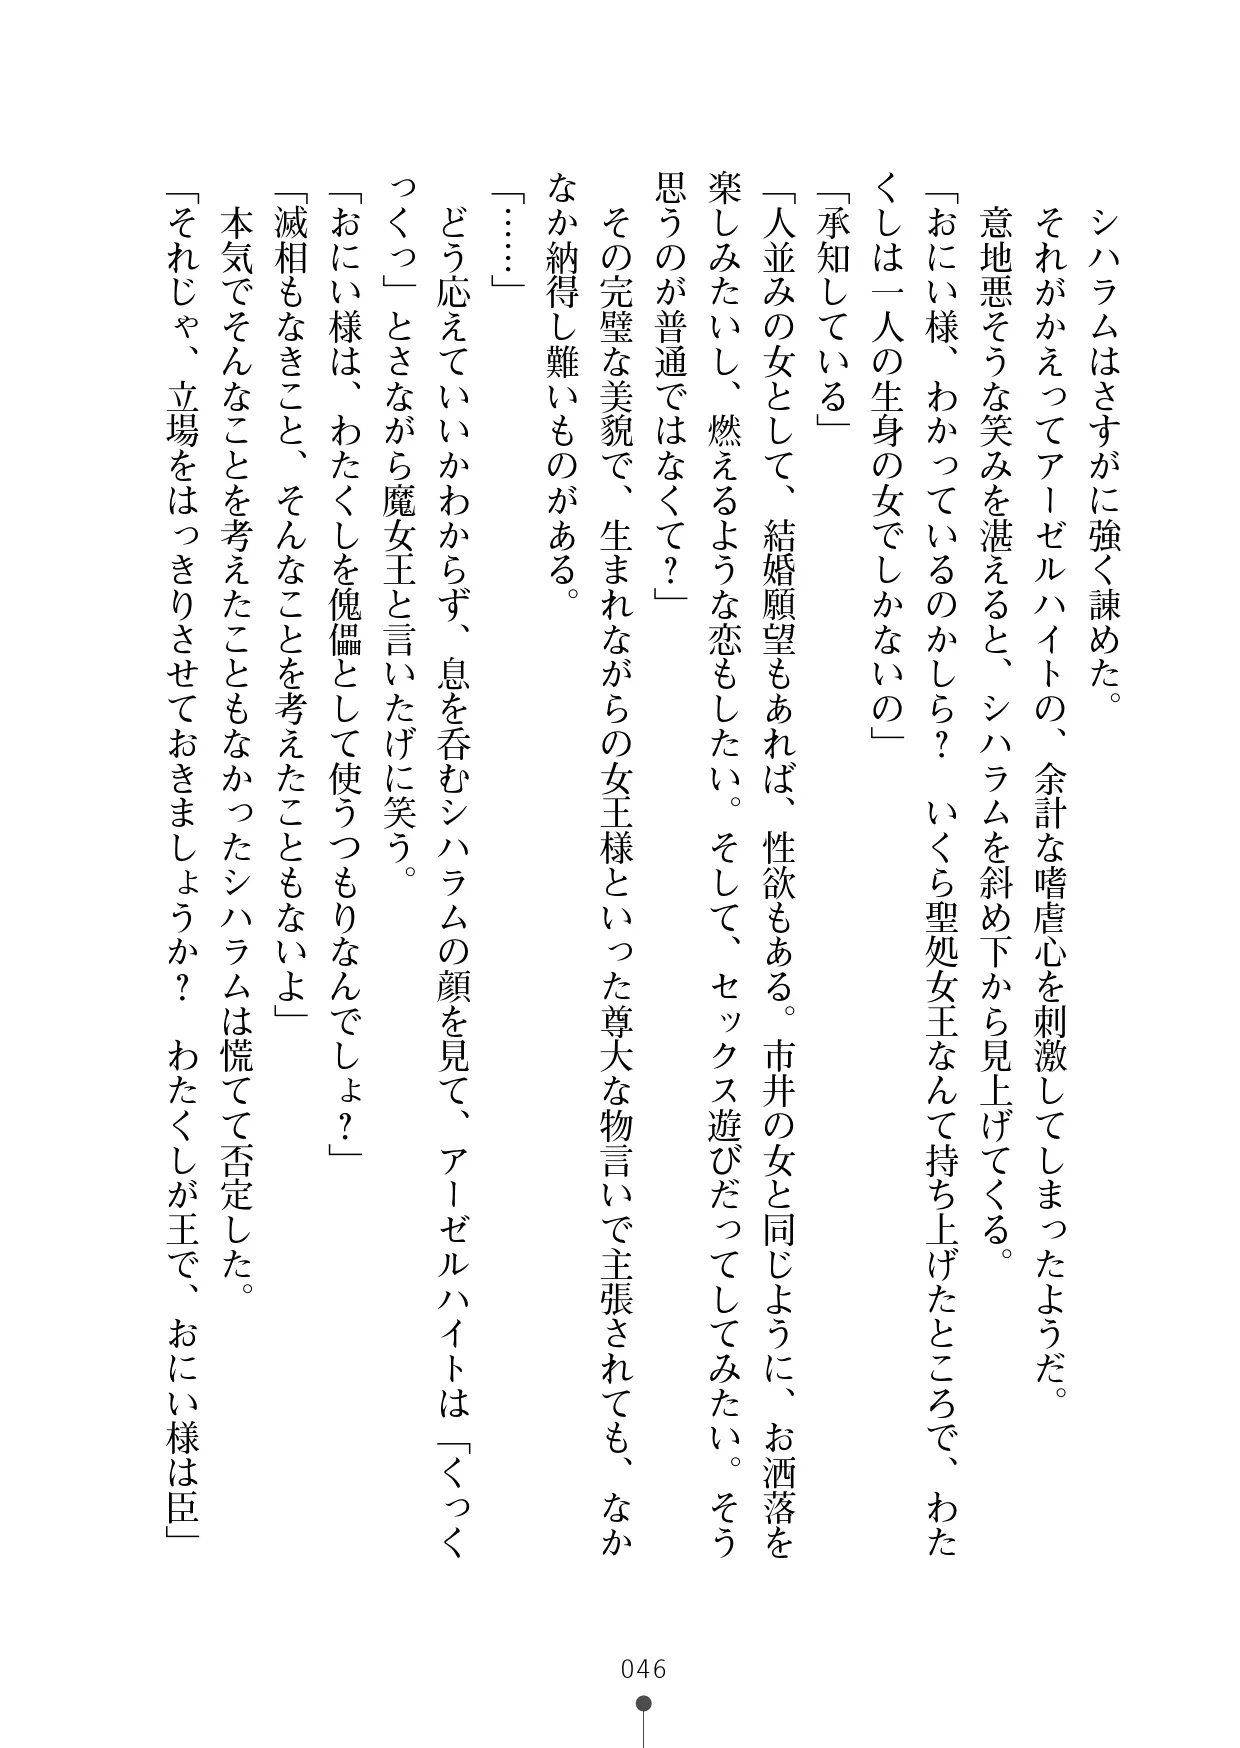 シハラムはさすがに強く諌めた。
それがかえってアーゼルハイトの、余計な嗜虐心を刺激してしまったようだ。
意地悪そうな笑みを湛えると、シハラムを斜め下から見上げてくる。
「おにい様、わかっているのかしら？　いくら聖処女王なんて持ち上げたところで、わた
くしは一人の生身の女でしかないの」
「承知している」
「人並みの女として、結婚願望もあれば、性欲もある。市井の女と同じように、お洒落を
楽しみたいし、燃えるような恋もしたい。そして、セックス遊びだってしてみたい。そう
思うのが普通ではなくて？」
その完璧な美貌で、生まれながらの女王様といった尊大な物言いで主張されても、なか
なか納得し難いものがある。
「……」
どう応えていいかわからず、息を呑むシハラムの顔を見て、アーゼルハイトは「くっく
っくっ」とさながら魔女王と言いたげに笑う。
「おにい様は、わたくしを傀儡として使うつもりなんでしょ？」
「滅相もなきこと、そんなことを考えたこともないよ」
本気でそんなことを考えたこともなかったシハラムは慌てて否定した。
「それじゃ、立場をはっきりさせておきましょうか？　わたくしが王で、おにい様は臣」
046